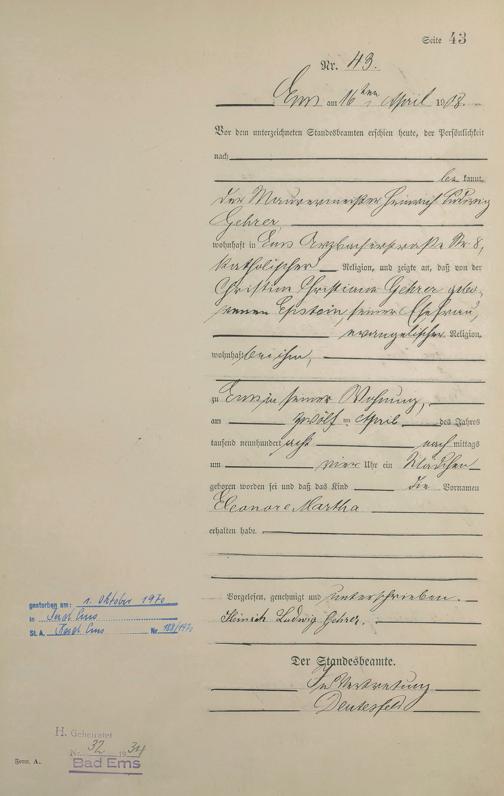 Seite 43
Nr. 43.
Ems am 16ten April 1908.
Vor dem unterzeichneten Standesbeamten erschien heute, der Persönlichkeit
nach
be kannt,
der Maurermeister Heinrich Ludwig
Gehrer,
wohnhaft in Ems Arzbacherstraße Nr 8,
katholischer Religion, und zeigte an, daß von der
Christina Christiana Gehrer gebo-
renen Epstein, seiner Ehefrau,
evangelischer Religion,
wohnhaft bei ihm,
zu Ems in seiner Wohnung,
am zwölften April des Jahres
tausend neunhundert acht nach mittags
um vier Uhr ein Mädchen
geboren worden sei und daß das Kind die Vornamen
Eleonore Martha
erhalten habe.
Vorgelesen, genehmigt und unterschrieben.
Heinrich Ludwig Gehrer.
Der Standesbeamte.
In Vertretung
gestorben am: 1. Oktober 1970
in Bad Ems
St. A. Bad Ems Nr. 188/1970
H. Geheiratet
Nr. 32 1934
Bad Ems
Form. A.